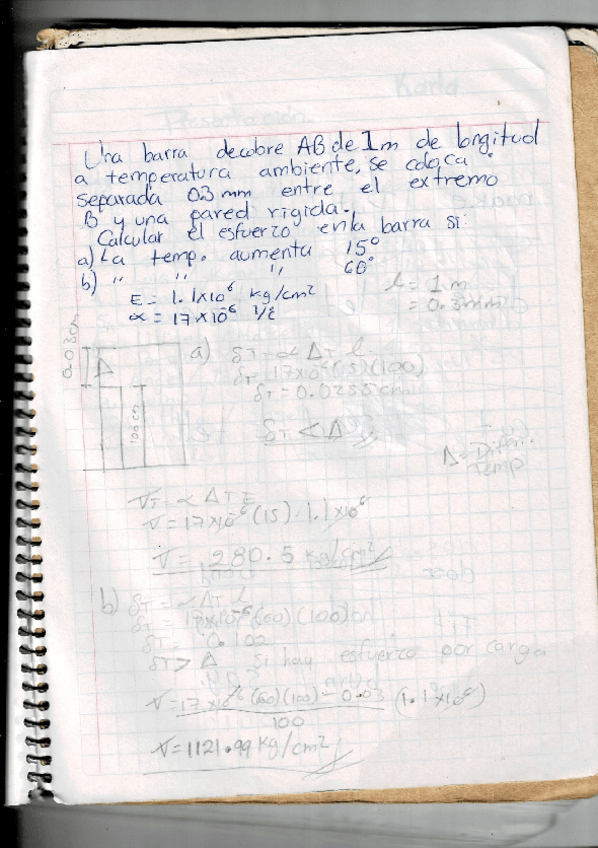 Karla
Presentación
Una barra decobre AB de 1m de longitud
a temperatura ambiente, se coloca
separada 0.3 mm entre el extremo
B y una pared rigida.
Calcular el esfuerzo en la barra si:
a) La temp. aumenta 15°
b) " " " 60°
E = 1.1x10⁶ kg/cm²
α = 17x10⁻⁶ 1/°C
l = 1 m
= 0.3mm
0.03cm
Δ
100 cm
a) δT = α ΔT l
δT = 17x10⁻⁶(15)(100)
δT = 0.0255 cm
δT < Δ
Δ = Difer.
Temp
σT = α ΔT E
σ = 17x10⁻⁶ (15) · 1.1x10⁶
σ = 280.5 kg/cm²
b) δT = α ΔT l
δT = 17x10⁻⁶ (60)(100)
δT = 0.102
δT > Δ Si hay esfuerzo por carga
σ = 17x10⁻⁶ (60)(100) - 0.03 (1.1x10⁶)
100
σ = 1121.99 kg/cm²